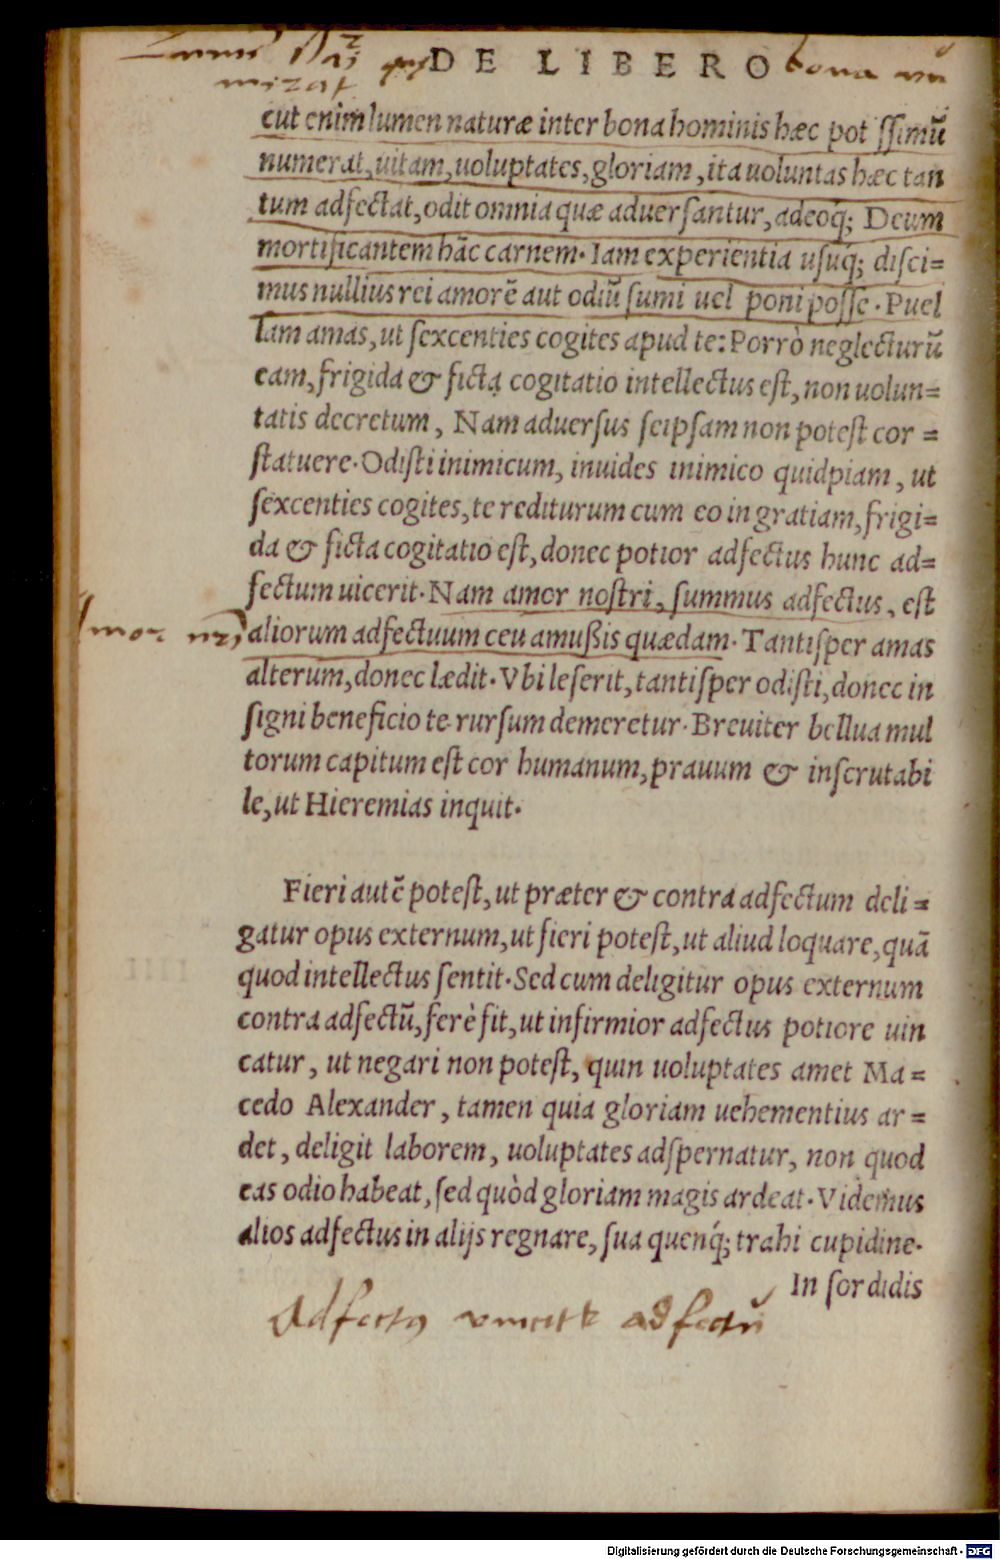 DE LIBERO bona
cut enim lumen naturæ inter bona hominis hæc pot ſſimũ
numerat, uitam, uoluptates, gloriam, ita uoluntas hæc tan
tum adfectat, odit omnia quæ aduerſantur, adeoq́; Deum
mortificantem hãc carnem. Iam experientia uſuq́; diſci=
mus nullius rei amorẽ aut odiũ ſumi uel poni poſſe. Puel
lam amas, ut ſexcenties cogites apud te: Porrò neglecturũ
eam, frigida & ficta cogitatio intellectus eſt, non uolun=
tatis decretum, Nam aduerſus ſeipſam non poteſt cor =
ſtatuere. Odiſti inimicum, inuides inimico quidpiam, ut
ſexcenties cogites, te rediturum cum eo in gratiam, frigi=
da & ficta cogitatio eſt, donec potior adfectus hunc ad=
fectum uicerit. Nam amor noſtri, ſummus adfectus, eſt
aliorum adfectuum ceu amußis quædam. Tantiſper amas
alterum, donec lædit. Vbi leſerit, tantiſper odiſti, donec in
ſigni beneficio te rurſum demeretur. Breuiter bellua mul
torum capitum eſt cor humanum, prauum & inſcrutabi
le, ut Hieremias inquit.
Fieri autẽ poteſt, ut præter & contra adfectum deli=
gatur opus externum, ut fieri poteſt, ut aliud loquare, quã
quod intellectus ſentit. Sed cum deligitur opus externum
contra adfectũ, ferè fit, ut infirmior adfectus potiore uin
catur, ut negari non poteſt, quin uoluptates amet Ma=
cedo Alexander, tamen quia gloriam uehementius ar=
det, deligit laborem, uoluptates adſpernatur, non quod
eas odio habeat, ſed quòd gloriam magis ardeat. Videmus
alios adfectus in alijs regnare, ſua quenq́; trahi cupidine.
In ſordidis
Adfectus adfectũ
Digitalisierung gefördert durch die Deutsche Forschungsgemeinschaft - DFG